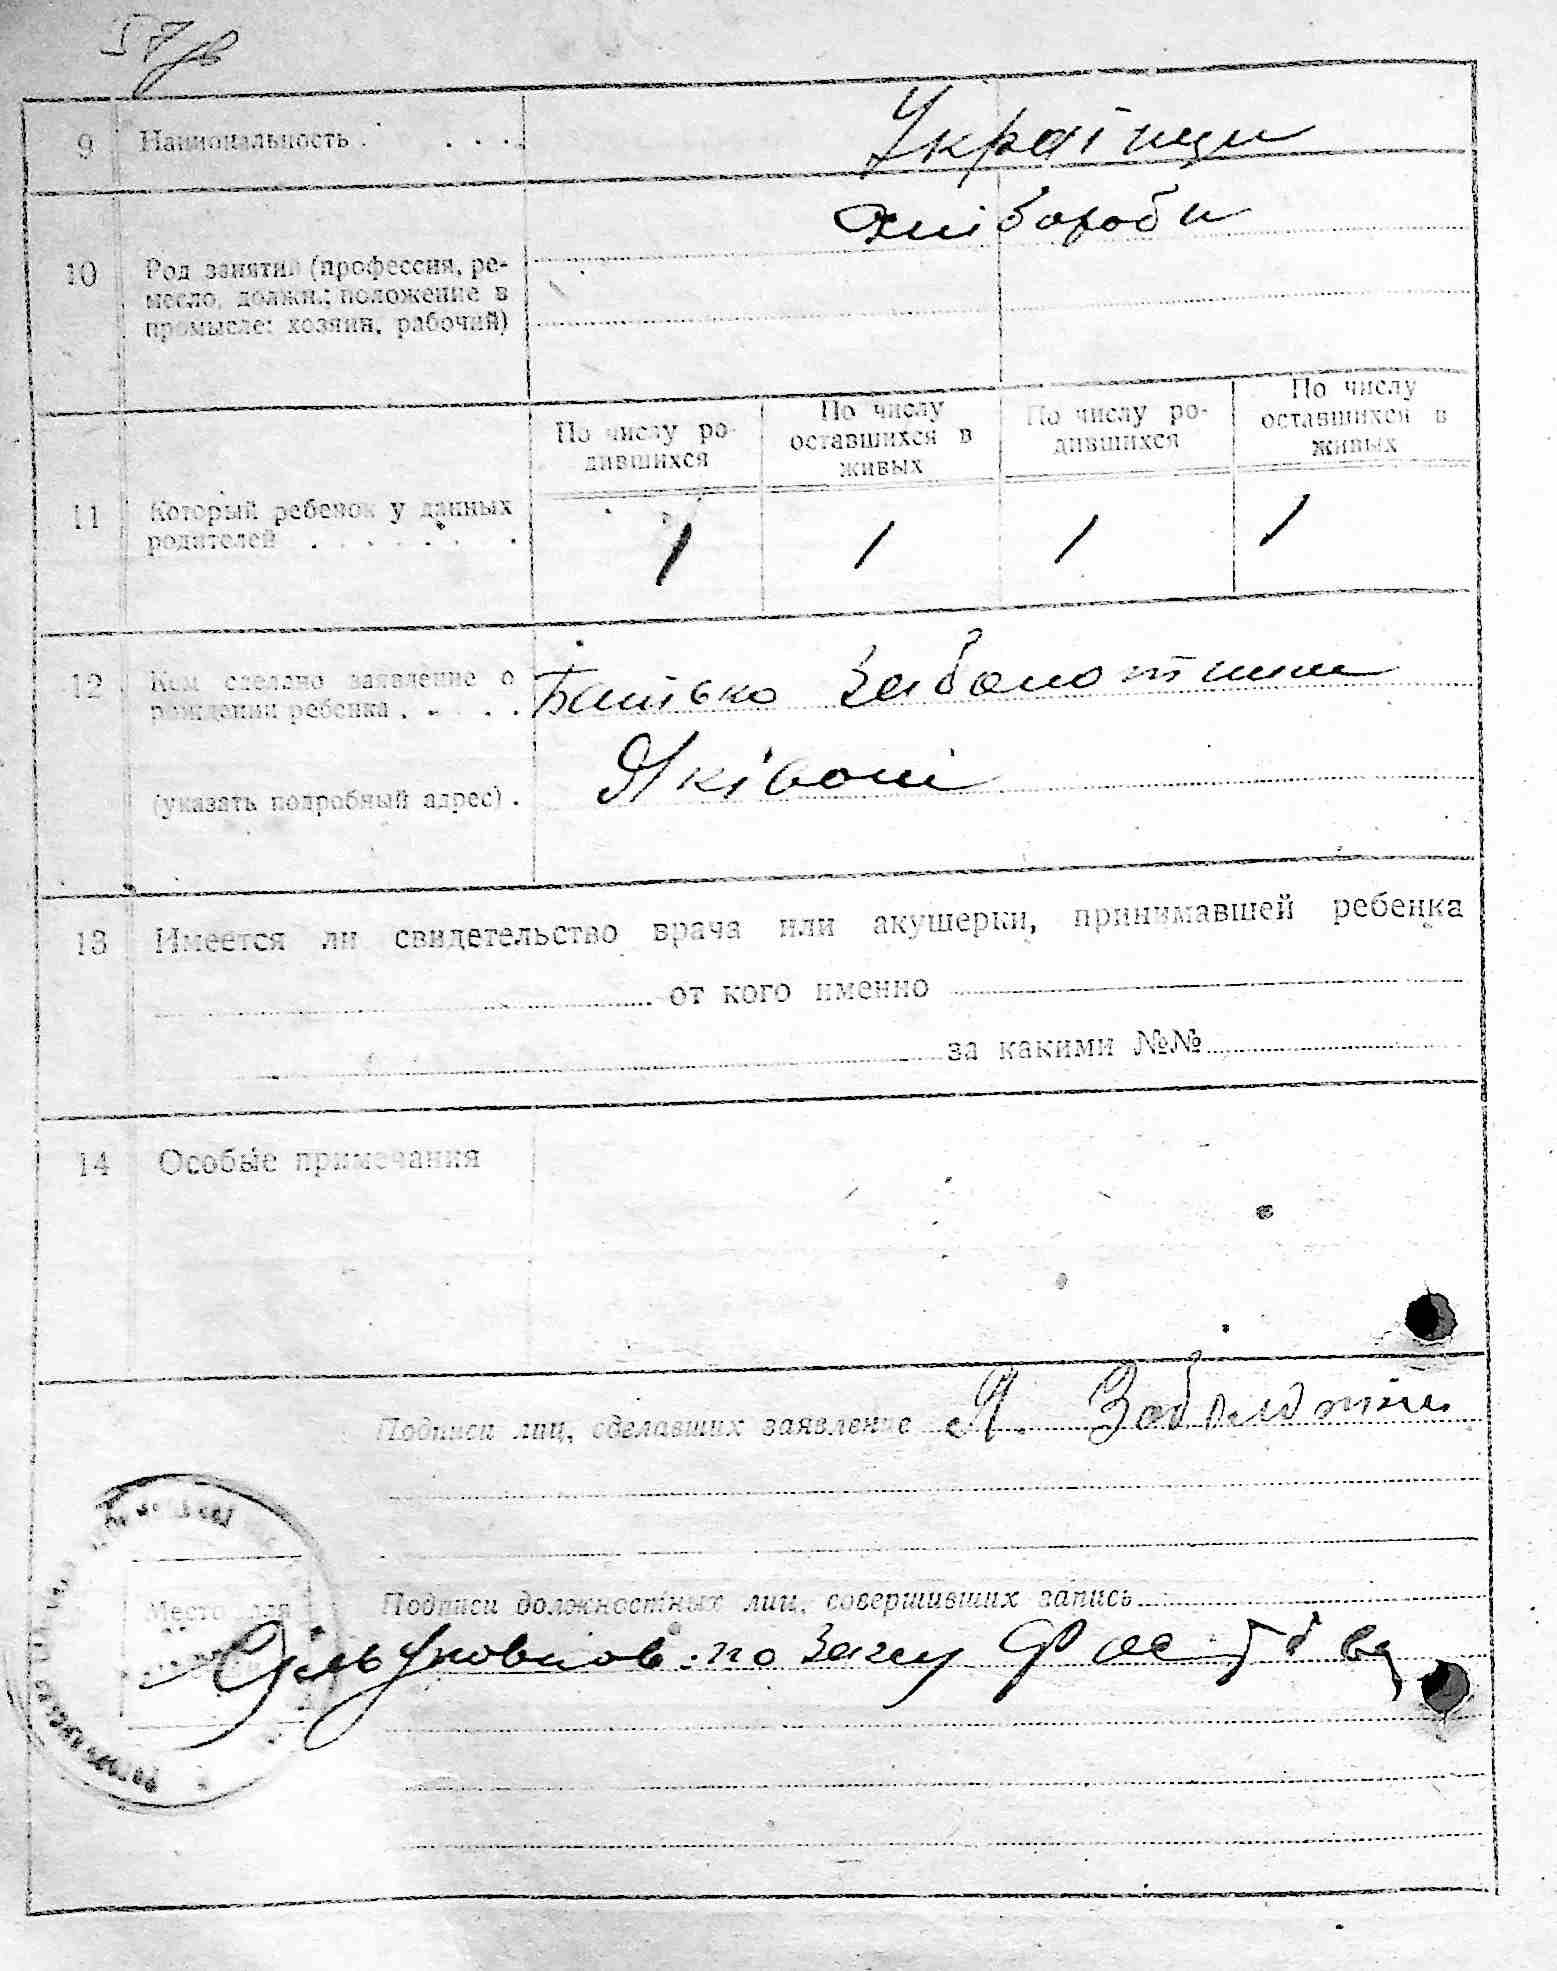 57 зв
9 Национальность . . . . Українци
Хліבороби
10 Род занятий (профессия, ре-
месло, должн.: положение в
промысле: хозяин, рабочий)
По числу ро-
дившихся
По числу
оставшихся в
живых
По числу ро-
дившихся
По числу
оставшихся в
живых
11 Который ребенок у данных
родителей . . . . . . .
1 1 1 1
12 Кем сделано заявление о
рождении ребенка . . . . Батько Заболотний
Яків
(указать подробный адрес) .
13 Имеется ли свидетельство врача или акушерки, принимавшей ребенка
от кого именно
за какими №№
14 Особые примечания
Подписи лиц, сделавших заявление Я. Заболотни
Подписи должностных лиц, совершивших запись
Место для
по Загсу